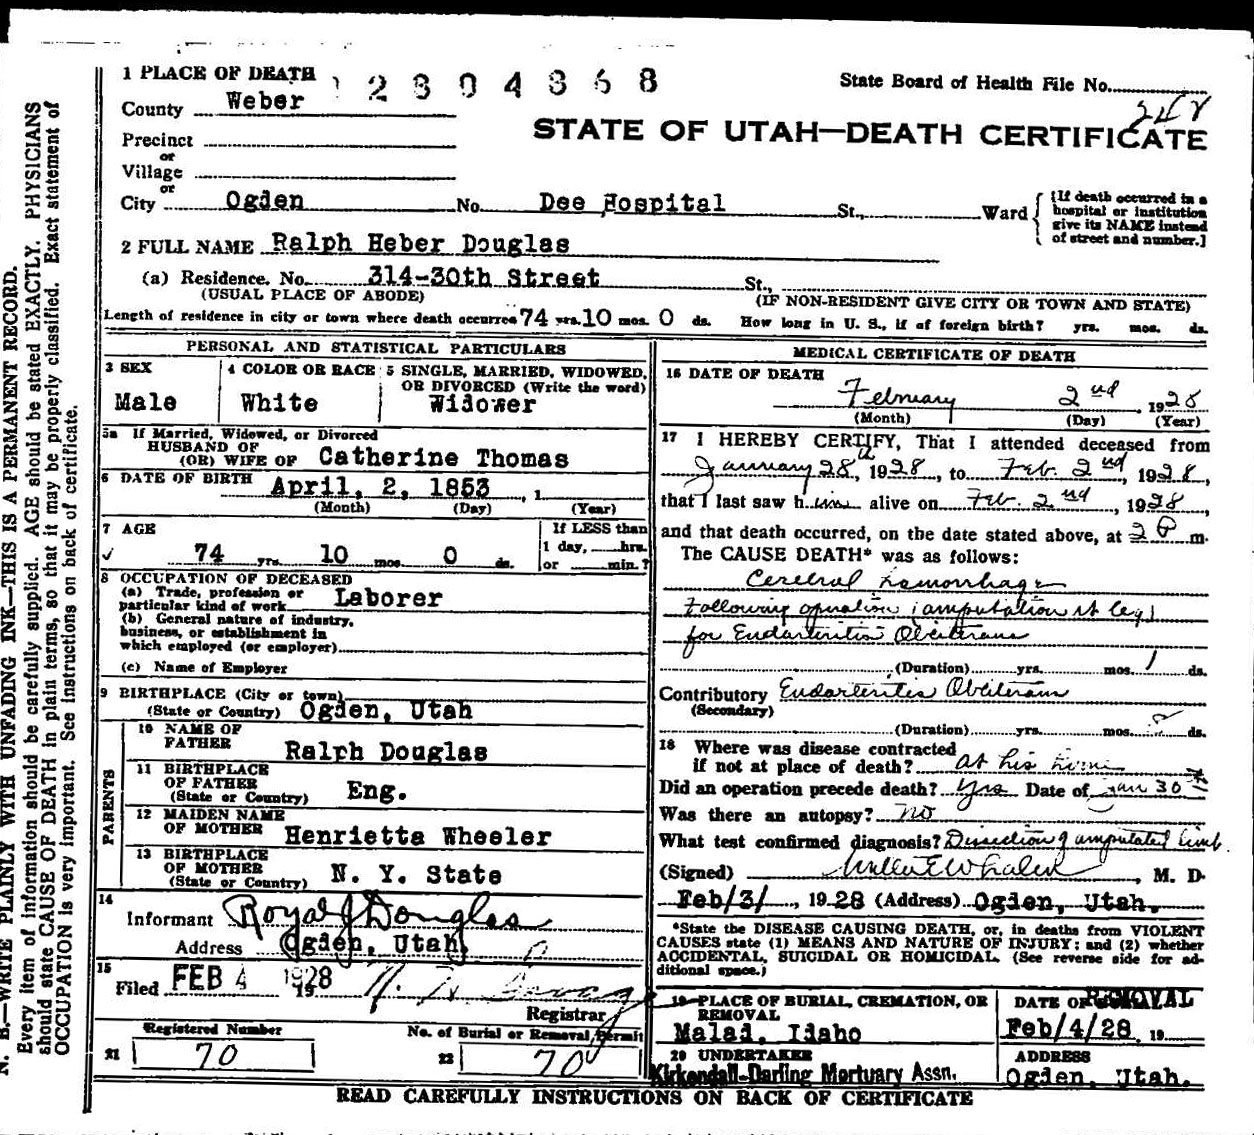 1 PLACE OF DEATH
2804868
State Board of Health File No.
248
County Weber
STATE OF UTAH—DEATH CERTIFICATE
Precinct
or
Village
or
City Ogden No. Dee Hospital St., Ward
[If death occurred in a hospital or institution give its NAME instead of street and number.]
2 FULL NAME Ralph Heber Douglas
(a) Residence. No. 314-30th Street St.,
(USUAL PLACE OF ABODE) (IF NON-RESIDENT GIVE CITY OR TOWN AND STATE)
Length of residence in city or town where death occurred 74 yrs. 10 mos. 0 ds. How long in U. S., if of foreign birth? yrs. mos. ds.
PERSONAL AND STATISTICAL PARTICULARS
3 SEX
Male
4 COLOR OR RACE
White
5 SINGLE, MARRIED, WIDOWED,
OR DIVORCED (Write the word)
Widower
5a If Married, Widowed, or Divorced
HUSBAND OF
(OR) WIFE OF Catherine Thomas
6 DATE OF BIRTH April, 2, 1853, 1
(Month) (Day) (Year)
7 AGE
74 yrs. 10 mos 0 ds.
If LESS than
1 day, hrs.
or min.?
8 OCCUPATION OF DECEASED
(a) Trade, profession or
particular kind of work Laborer
(b) General nature of industry,
business, or establishment in
which employed (or employer)
(c) Name of Employer
9 BIRTHPLACE (City or town)
(State or Country) Ogden, Utah
PARENTS
10 NAME OF
FATHER Ralph Douglas
11 BIRTHPLACE
OF FATHER
(State or Country) Eng.
12 MAIDEN NAME
OF MOTHER Henrietta Wheeler
13 BIRTHPLACE
OF MOTHER
(State or Country) N. Y. State
14
Informant Royal J Douglas
Address Ogden, Utah
15
Filed FEB 4 1928
19
Registrar
Registered Number
21 70
No. of Burial or Removal Permit
22 70
MEDICAL CERTIFICATE OF DEATH
16 DATE OF DEATH
February 2nd, 1928
(Month) (Day) (Year)
17 I HEREBY CERTIFY, That I attended deceased from
January 28th, 1928, to Feb. 2nd, 1928,
that I last saw him alive on Feb. 2nd, 1928
and that death occurred, on the date stated above, at 2 P m.
The CAUSE DEATH* was as follows:
Cerebral hemorrhage
Following operation (amputation rt leg)
for Endarteritis Obliterans
(Duration) yrs. mos. 1 ds.
Contributory Endarteritis Obliterans
(Secondary)
(Duration) yrs. mos. ds.
18 Where was disease contracted
if not at place of death? at his home
Did an operation precede death? Yes Date of Jan 30th
Was there an autopsy? no
What test confirmed diagnosis? Dissection of amputated limb.
(Signed) Whalen, M. D.
Feb/3/, 1928 (Address) Ogden, Utah.
*State the DISEASE CAUSING DEATH, or, in deaths from VIOLENT
CAUSES state (1) MEANS AND NATURE OF INJURY; and (2) whether
ACCIDENTAL, SUICIDAL OR HOMICIDAL. (See reverse side for ad-
ditional space.)
19 PLACE OF BURIAL, CREMATION, OR
REMOVAL
Malad, Idaho
DATE OF REMOVAL
Feb/4/28 19
20 UNDERTAKER
Kirkendall-Darling Mortuary Assn.
ADDRESS
Ogden, Utah.
READ CAREFULLY INSTRUCTIONS ON BACK OF CERTIFICATE
N. B.—WRITE PLAINLY WITH UNFADING INK—THIS IS A PERMANENT RECORD.
Every item of information should be carefully supplied. AGE should be stated EXACTLY. PHYSICIANS
should state CAUSE OF DEATH in plain terms, so that it may be properly classified. Exact statement of
OCCUPATION is very important. See instructions on back of certificate.